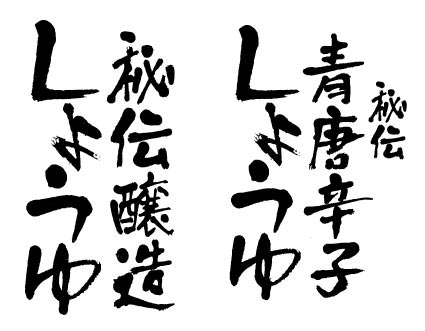 秘伝
青唐辛子
しょうゆ
秘伝醸造
しょうゆ